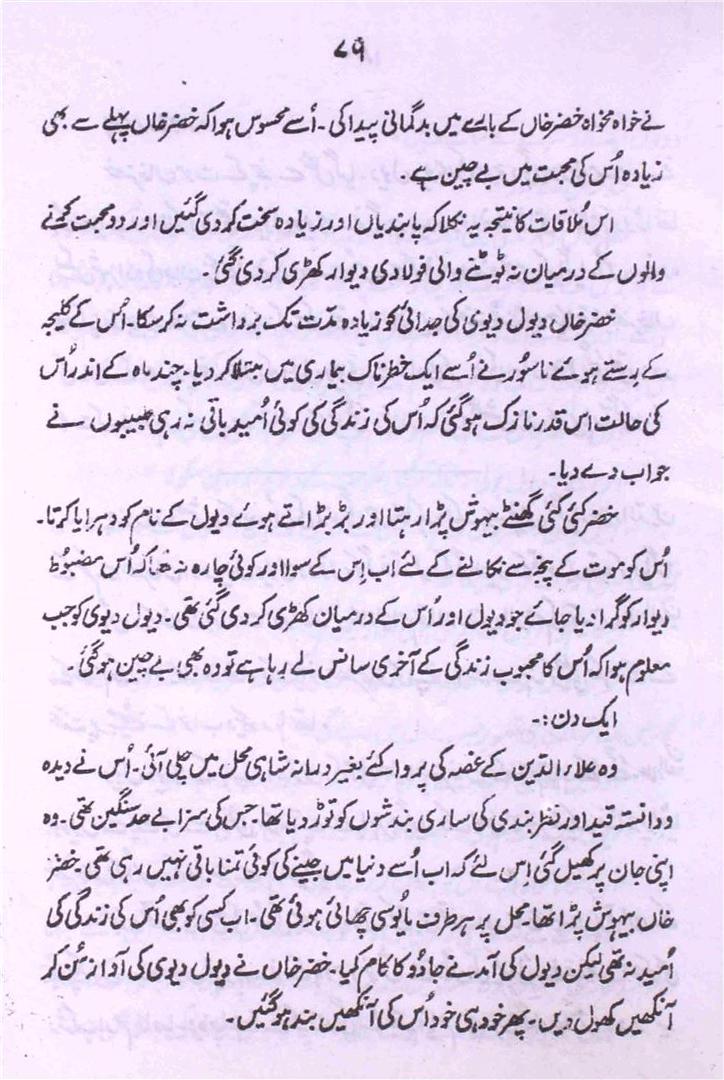 ۷۹
نے خواہ مخواہ خضر خاں کے بارے میں بدگمانی پیدا کی۔ اُسے محسوس ہوا کہ خضر خاں پہلے سے بھی
زیادہ اُس کی محبت میں بے چین ہے۔
اس مُلاقات کا نتیجہ یہ نکلا کہ پابندیاں اور زیادہ سخت کر دی گئیں اور دو محبت کرنے
والوں کے درمیان نہ ٹوٹنے والی فولادی دیوار کھڑی کر دی گئی۔
خضر خاں دیول دیوی کی جدائی کو زیادہ مدّت تک برداشت نہ کر سکا۔ اُس کے کلیجہ
کے رستے ہوئے ناسُور نے اُسے ایک خطرناک بیماری میں مبتلا کر دیا۔ چند ماہ کے اندر اُس
کی حالت اس قدر نازک ہو گئی کہ اُس کی زندگی کی کوئی اُمید باقی نہ رہی طبیبوں نے
جواب دے دیا۔
خضر کئی کئی گھنٹے بیہوش پڑا رہتا اور بڑبڑاتے ہوئے دیول کے نام کو دہرایا کرتا۔
اُس کو موت کے پنجہ سے نکالنے کے لئے اب اِس کے سوا اور کوئی چارہ نہ تھا کہ اُس مضبُوط
دیوار کو گرا دیا جائے جو دیول اور اُس کے درمیان کھڑی کر دی گئی تھی۔ دیول دیوی کو جب
معلوم ہوا کہ اُس کا محبوب زندگی کے آخری سانس لے رہا ہے تو وہ بھی بے چین ہو گئی۔
ایک دن:۔
وہ علاء الدین کے غصہ کی پروا کئے بغیر دیوانہ شاہی محل میں چلی آئی۔ اُس نے دیدہ
و دانستہ قید اور نظر بندی کی ساری بندشوں کو توڑ دیا تھا۔ جس کی سزا بے حد سنگین تھی۔ وہ
اپنی جان پر کھیل گئی اِس لئے کہ اب اُسے دنیا میں جینے کی کوئی تمنا باقی نہیں رہی تھی۔ خضر
خاں بیہوش پڑا تھا۔ محل پر ہر طرف مایُوسی چھائی ہوئی تھی۔ اب کسی کو بھی اُس کی زندگی کی
اُمید نہ تھی لیکن دیول کی آمد نے جادُو کا کام کیا۔ خضر خاں نے دیول دیوی کی آواز سُن کر
آنکھیں کھول دیں۔ پھر خود ہی خود اُس کی آنکھیں بند ہو گئیں۔